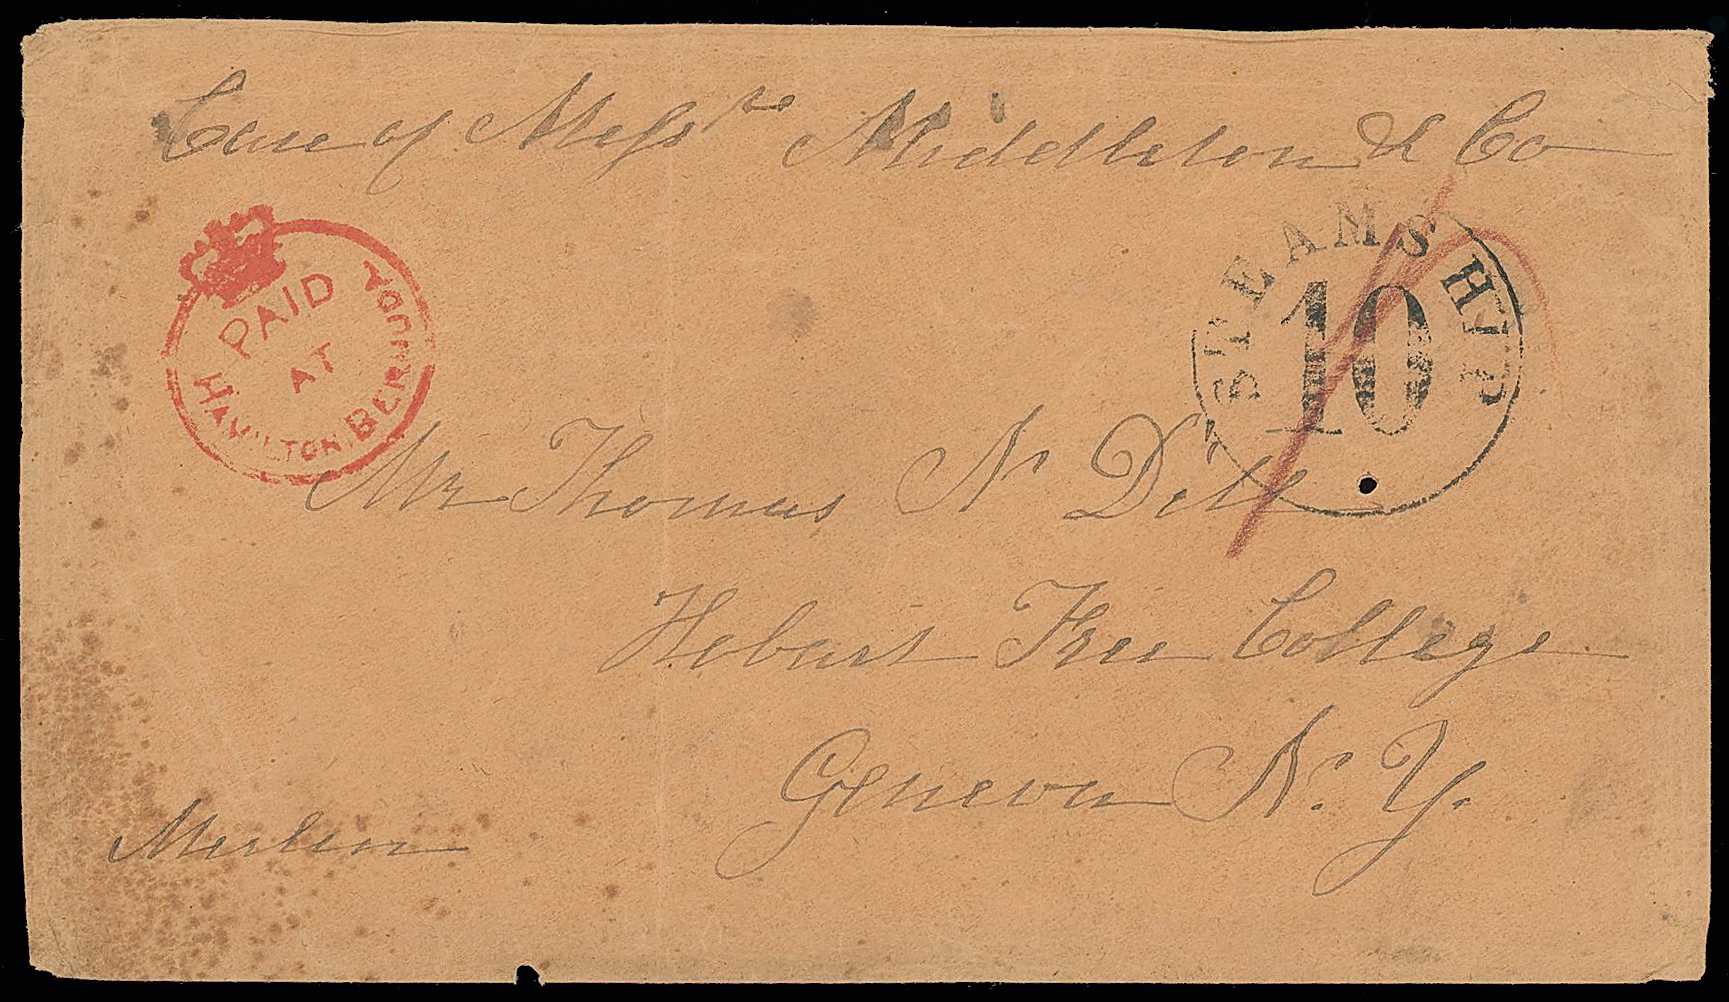 Care of Messrs Middleton & Co
PAID
AT
HAMILTON BERMUDA
STEAMSHIP
10
Mr Thomas N Dill
Hobart Free College
Geneva N. Y.
Merlin